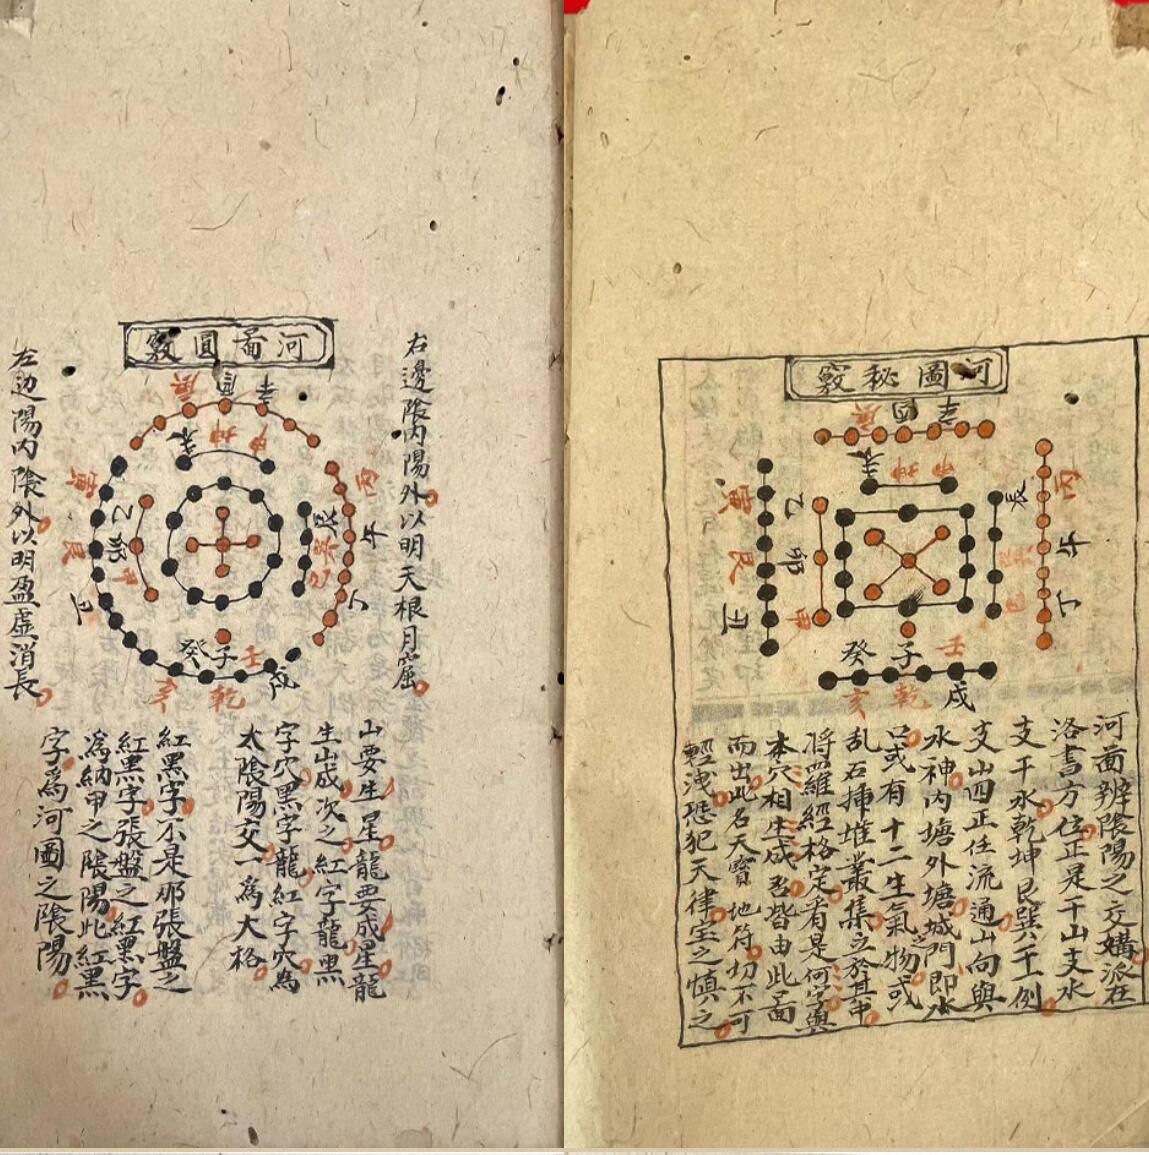 河圖秘竅
辛酉庚
申坤未
丙午丁
辰巽巳
乙卯甲
寅艮丑
壬子癸
戌乾亥
河啚辨陰陽之交媾派在
洛書方位正是干山支水
支干水乾坤艮巽例
支山四正任流通山向與
水神內塘外塘城門即水
口或有十二生氣之物或
乱石揷堆叢集立於其中
将羅經格定看是何字與
本穴相生成否皆由此啚
而出此名天寶地符切不可
輕浅恐犯天律宝之慎之
河啚圓竅
右邊陰內陽外以明天根月窟
辛酉庚
申坤未
丙午丁
辰巽巳
乙卯甲
寅艮丑
壬子癸
戌乾亥
左边陽內陰外以明盈虛消長
山要生星龍要成星龍
生山成次之紅字龍黑
字穴黑字龍紅字穴為
太陰陽交一為大格
紅黑字不是那張盤之
紅黑字張盤之紅黑字
為納甲之陰陽此紅黑
字為河圖之陰陽